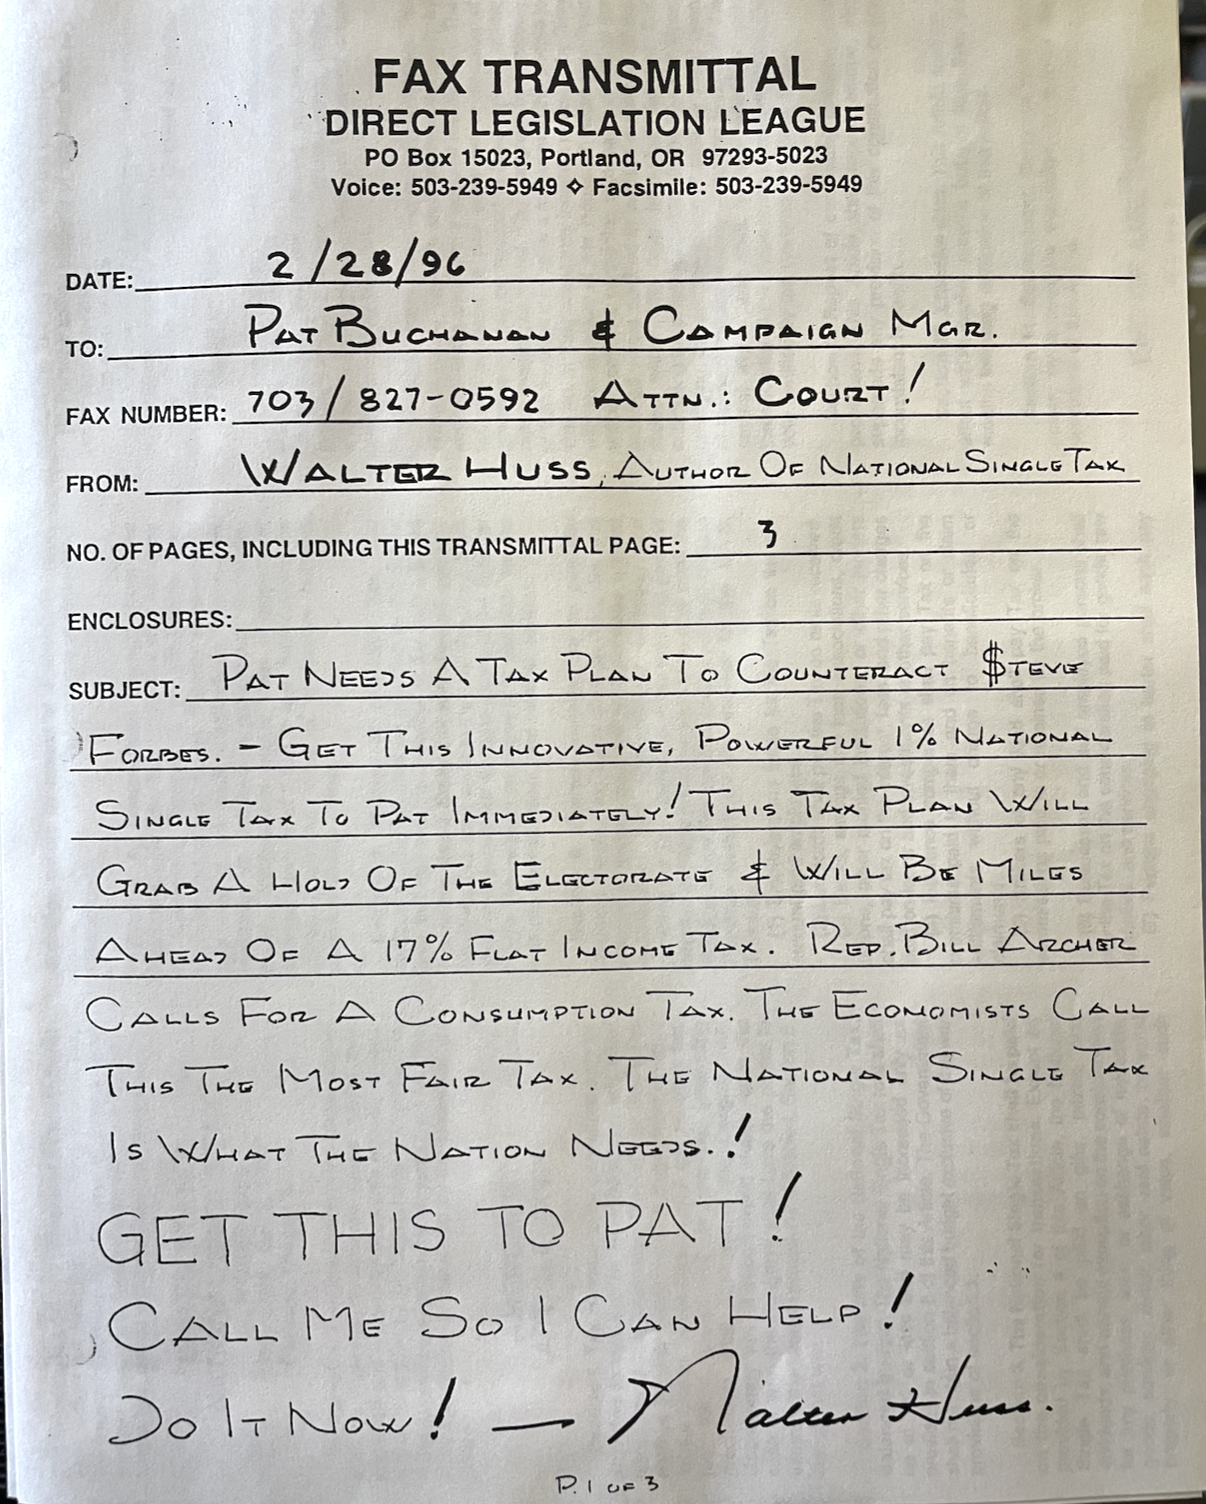 FAX TRANSMITTAL
DIRECT LEGISLATION LEAGUE
PO Box 15023, Portland, OR 97293-5023
Voice: 503-239-5949 ✧ Facsimile: 503-239-5949
DATE: 2/28/96
TO: PAT BUCHANAN & CAMPAIGN MGR.
FAX NUMBER: 703/827-0592 ATTN.: COURT!
FROM: WALTER HUSS, AUTHOR OF NATIONAL SINGLE TAX
NO. OF PAGES, INCLUDING THIS TRANSMITTAL PAGE: 3
ENCLOSURES:
SUBJECT: PAT NEEDS A TAX PLAN TO COUNTERACT $TEVE
FORBES. - GET THIS INNOVATIVE, POWERFUL 1% NATIONAL
SINGLE TAX TO PAT IMMEDIATELY! THIS TAX PLAN WILL
GRAB A HOLD OF THE ELECTORATE & WILL BE MILES
AHEAD OF A 17% FLAT INCOME TAX. REP. BILL ARCHER
CALLS FOR A CONSUMPTION TAX. THE ECONOMISTS CALL
THIS THE MOST FAIR TAX. THE NATIONAL SINGLE TAX
IS WHAT THE NATION NEEDS.!
GET THIS TO PAT!
CALL ME SO I CAN HELP!
DO IT NOW! — Walter Huss.
P. 1 OF 3